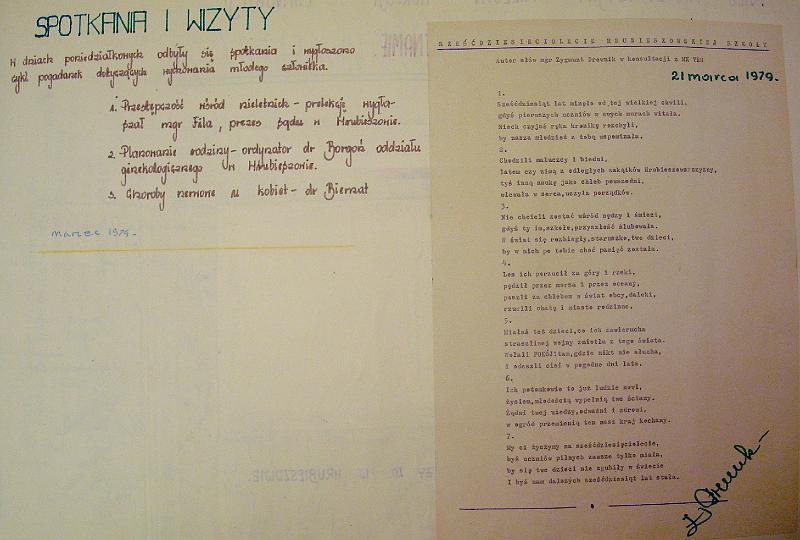 SPOTKANIA I WIZYTY
W dniach poniedziałkowych odbyły się spotkania i wygłoszono
cykl pogadanek dotyczących wychowania młodego człowieka.
1. Przestępczość wśród nieletnich - prelekcję wygła-
szał mgr Fila, prezes sądu w Hrubieszowie.
2. Planowanie rodziny - ordynator dr Borgoń oddziału
ginekologicznego w Hrubieszowie.
3. Choroby nerwowe u kobiet - dr Biernat
marzec 1979.
SZEŚĆDZIESIĘCIOLECIE HRUBIESZOWSKIEJ SZKOŁY
Autor słów mgr Zygmunt Drewnik w konsultacji z
21 marca 1979.
1.
Sześćdziesiąt lat minęło od tej wielkiej chwili,
gdyś pierwszych uczniów w swych murach witała.
Niech czyjaś ręka kronikę rozchyli,
by nasza młodzież z tobą wspominała.
2.
Chodzili maluczcy i biedni,
latem czy zimą z odległych zakątków Hrubieszowszczyzny,
tyś inną naukę jako chleb powszedni,
wlewała w serca, uczyła porządków.
3.
Nie chcieli zostać wśród nędzy i śmieci,
gdyś ty im, szkoło, przyszłość ślubowała.
W świat się rozbiegły, staruszko, twe dzieci,
by w nich po tobie choć pamięć została.
4.
Los ich porzucił za góry i rzeki,
pędził przez morza i przez oceany,
poszli za chlebem w świat obcy, daleki,
rzucili chatę i miasto rodzinne.
5.
Miałaś też dzieci, co ich zawierucha
straszliwej wojny zmiotła z tego świata.
Wołali POKÓJ! tam, gdzie nikt nie słucha,
i odeszli cieć w pogodne dni lata.
6.
Ich potomkowie to już ludzie nowi,
życiem, młodością wypełnią twe ściany.
Żądni twej wiedzy, odważni i zdrowi,
w ogród przemienią ten nasz kraj kochany.
7.
My ci życzymy na sześćdziesięciolecie,
byś uczniów pilnych zawsze tylko miała,
by się twe dzieci nie zgubiły w świecie
I byś nam dalszych sześćdziesiąt lat stała.